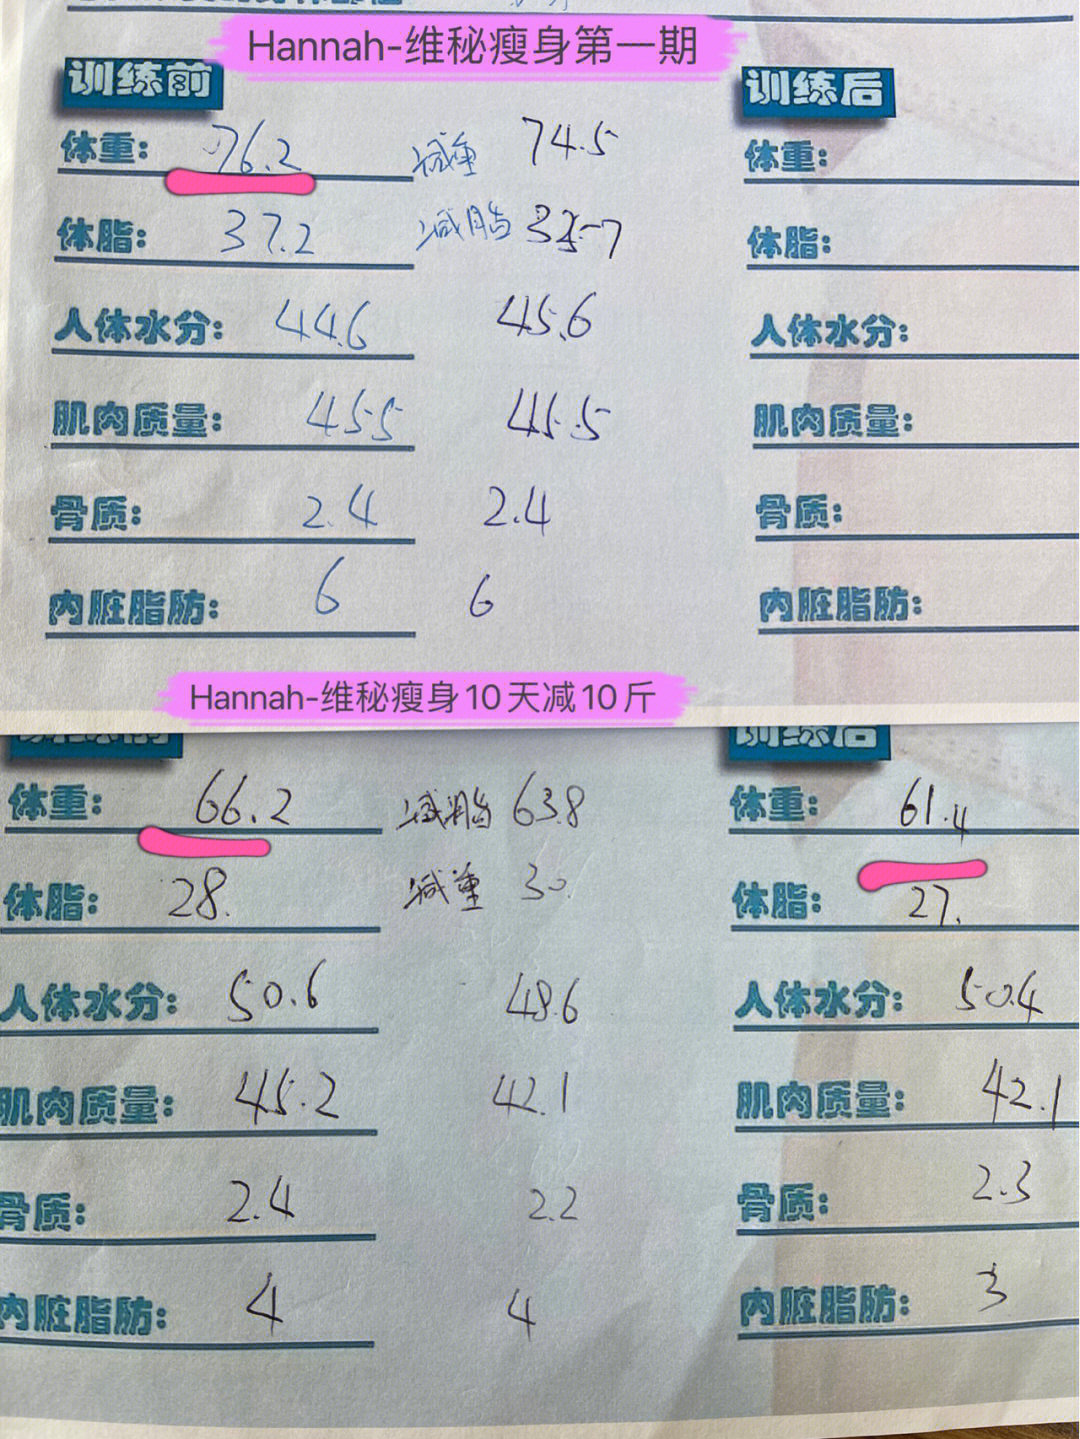 Hannah-维秘瘦身第一期
训练前 训练后
体重: 76.2 减重 74.5 体重:
体脂: 37.2 减脂 体脂:
人体水分: 44.6 45.6 人体水分:
肌肉质量: 45.5 45.5 肌肉质量:
骨质: 2.4 2.4 骨质:
内脏脂肪: 6 6 内脏脂肪:
Hannah-维秘瘦身10天减10斤
训练前 训练后
体重: 66.2 减脂 63.8 体重: 61.4
体脂: 28. 减重 30. 体脂: 27.
人体水分: 50.6 48.6 人体水分: 50.4
肌肉质量: 45.2 42.1 肌肉质量: 42.1
骨质: 2.4 2.2 骨质: 2.3
内脏脂肪: 4 4 内脏脂肪: 3